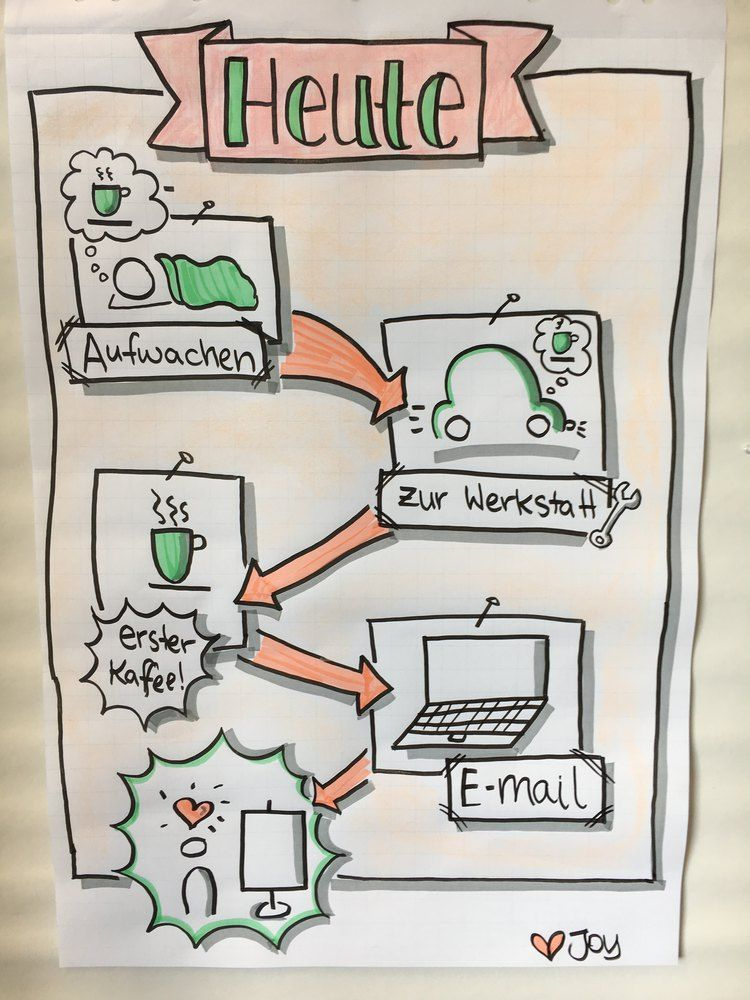 Heute
Aufwachen
zur Werkstatt
erster
Kaffee!
E-mail
Joy